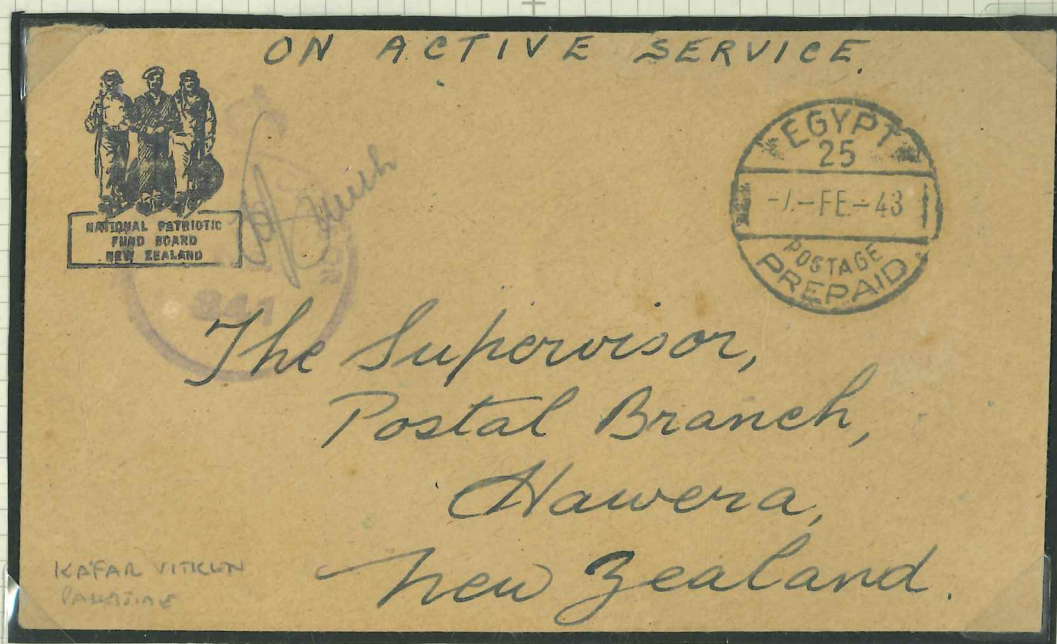 ON ACTIVE SERVICE.
NATIONAL PATRIOTIC
FUND BOARD
NEW ZEALAND
EGYPT
25
-7.-FE.-43
POSTAGE
PREPAID
841
The Supervisor,
Postal Branch,
Hawera,
New Zealand.
KAFAR VITKUN
PALESTINE